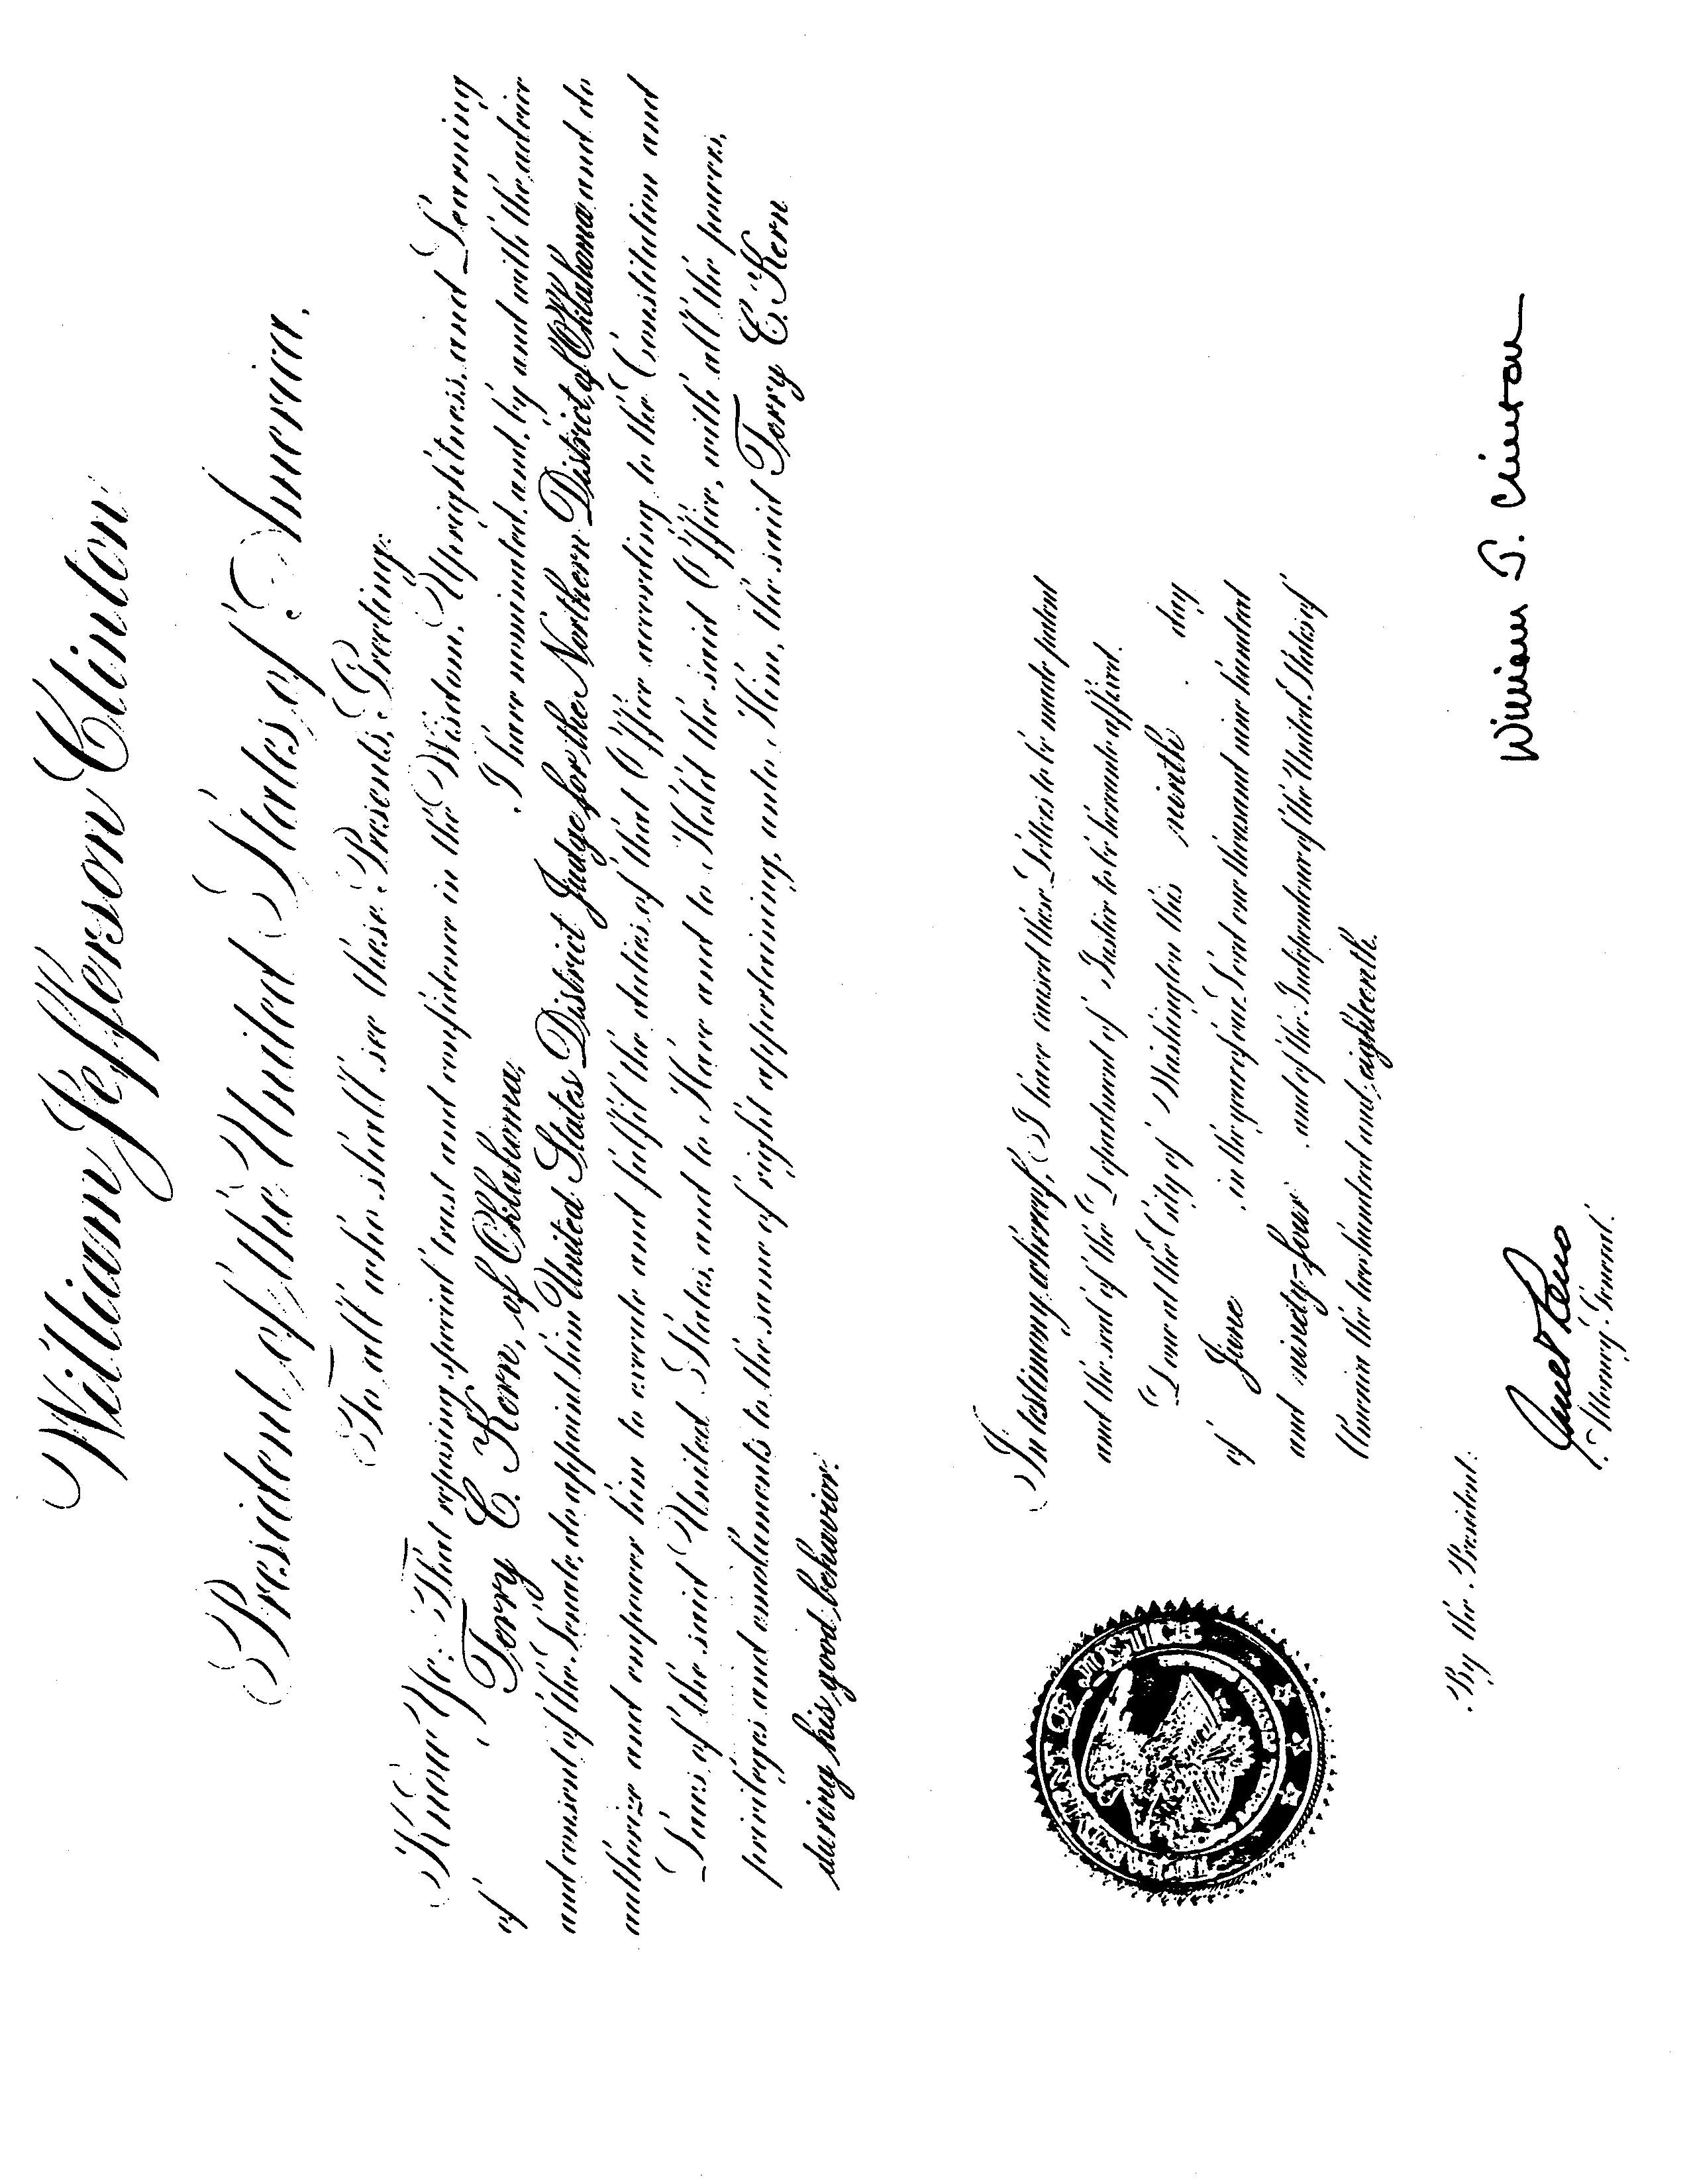 William Jefferson Clinton
President of the United States of America.
To all who shall see these Presents, Greeting:
Know Ye: That reposing special trust and confidence in the Wisdom, Uprightness, and Learning
of Terry C. Kern, of Oklahoma, I have nominated, and, by and with the advice
and consent of the Senate, do appoint him United States District Judge for the Northern District of Oklahoma and do
authorize and empower him to execute and fulfil the duties of that Office according to the Constitution and
Laws of the said United States, and to Have and to Hold the said Office, with all the powers,
privileges and emoluments to the same of right appertaining, unto Him, the said Terry C. Kern
during his good behavior.
In testimony whereof, I have caused these Letters to be made patent
and the seal of the Department of Justice to be hereunto affixed.
Done at the City of Washington this ninth day
of June in the year of our Lord one thousand nine hundred
and ninety-four and of the Independence of the United States of
America the two hundred and eighteenth.
DEPARTMENT OF JUSTICE
William J. Clinton
By the President:
Janet Reno
Attorney General.